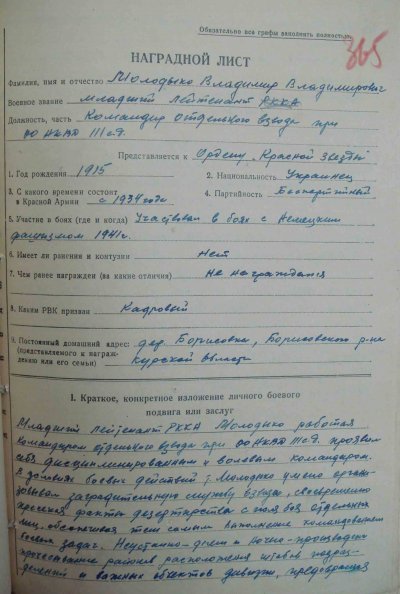 Обязательно все графы заполнять полностью
365
НАГРАДНОЙ ЛИСТ
Фамилия, имя и отчество Молодыко Владимир Владимирович
Военное звание младший лейтенант РККА
Должность, часть Командир отдельного взвода при
ОО НКВД III сд.
Представляется к Ордену "Красной Звезды"
1. Год рождения 1915 2. Национальность Украинец
3. С какого времени состоит
в Красной Армии с 1934 года 4. Партийность Беспартийный
5. Участие в боях (где и когда) Участвовал в боях с Немецким
фашизмом 1941г.
6. Имеет ли ранения и контузии Нет
7. Чем ранее награжден (за какие отличия) Не награждался
8. Каким РВК призван Кадровый
9. Постоянный домашний адрес: дер. Борисовка, Борисовского р-на
(представляемого к награж-
дению или его семьи) Курской области
I. Краткое, конкретное изложение личного боевого
подвига или заслуг
Младший лейтенант РККА Молодыко работая
командиром отдельного взвода при ОО НКВД III сд. проявил
себя дисциплинированным и волевым командиром.
В условиях боевых действий т. Молодыко умело органи-
зовывал заградительную службу взвода, своевременно
пресекая факты дезертирства с поля боя отдельных
лиц, обеспечивая тем самым выполнение командованием
боевых задач. Неустанно-днем и ночью-производил
прочесывание районов расположения штабов подраз-
делений и важных объектов дивизии, предотвращая